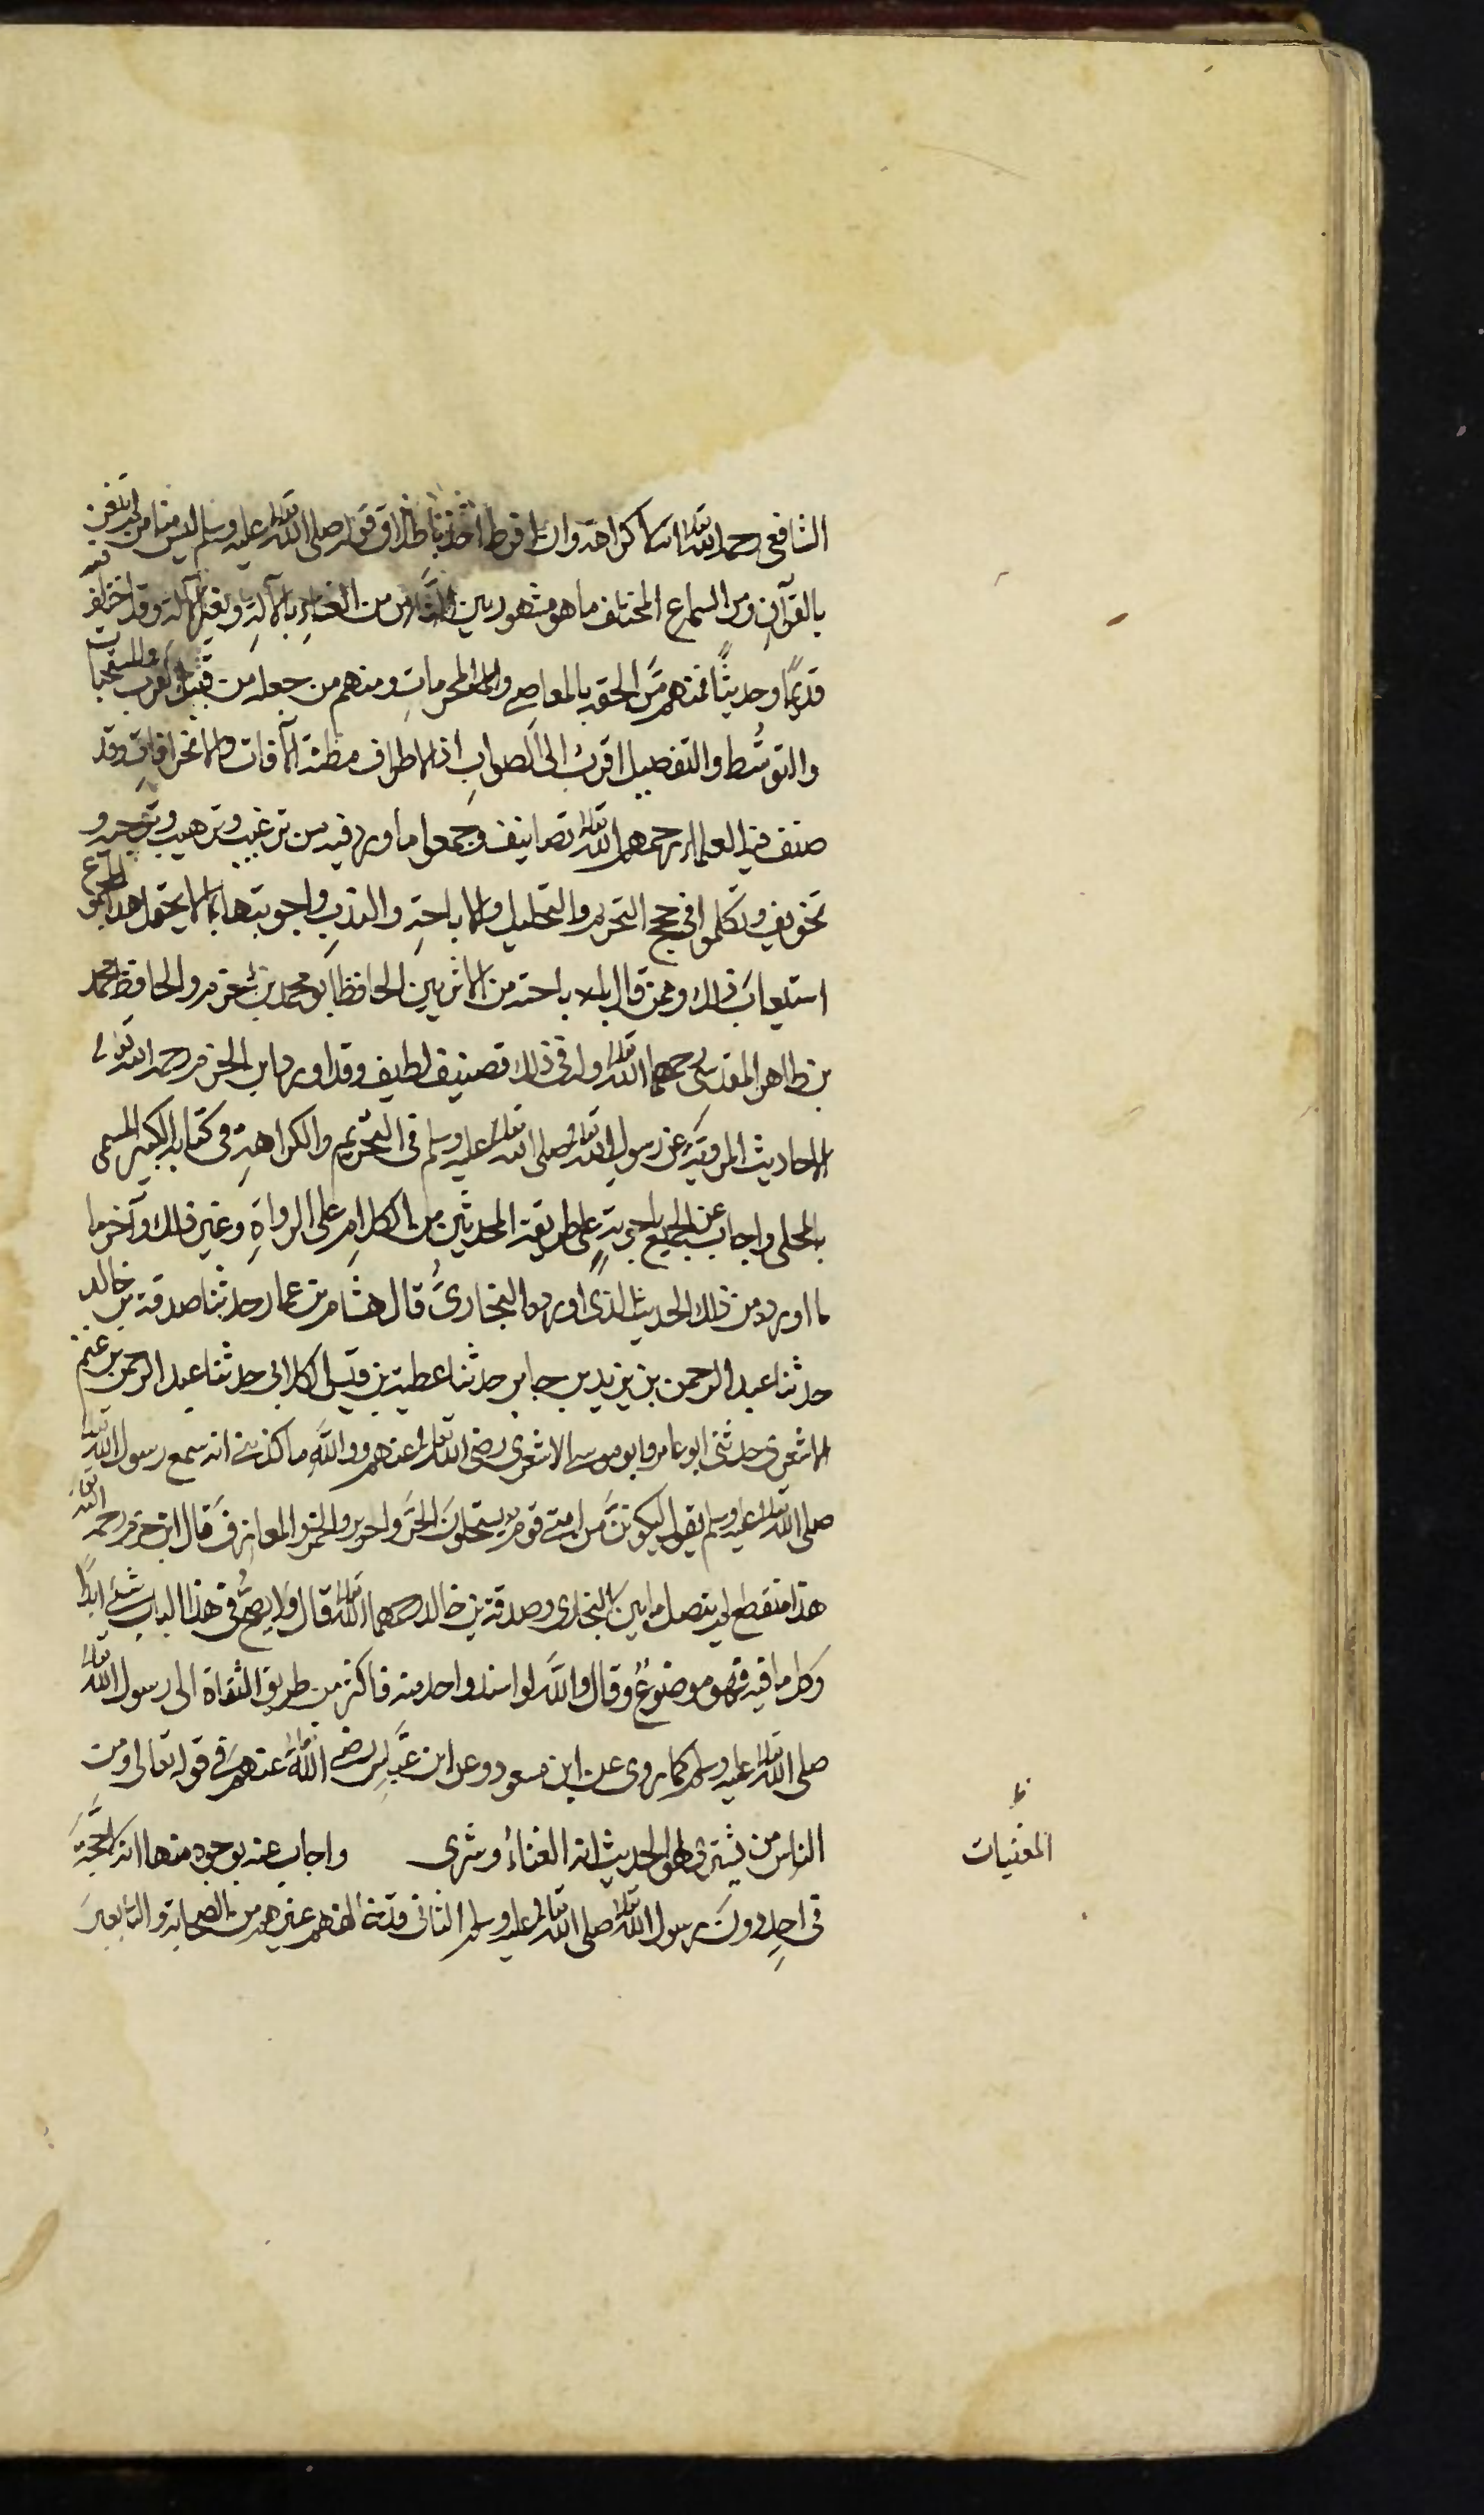 الشافعي رحمه الله تعالى انما كراهة وان افرط اخذنا باطلاق قوله صلى الله تعالى عليه وسلم ليس منا من لم يتغن
بالقرآنِ ومن السماع المختلف ما هو مشهور بين الناس من الغناءِ بالآلةِ وبغير آلة وقد اختلف فيه
قديمًا وحديثًا فمنهم مَن الحقه بالمعاصي والمحرماتِ ومنهم من جعله من قبيل القرب والمستحبات
والتوسُّط والتفصيل اقربُ الى الصوابِ اذ الاطراف مظنة الآفات والانحرافاتِ وقد
صنف فيه العلماء رحمهم الله تعالى تصانيف وجمعوا ما ورد فيه من ترغيب وترهيب وتوحيد و
تخويف وتكلموا في حجج التحريم والتحليل والاباحةِ والندبِ واجوبتها بما لا يحتمل هذا الموضع
استيعابَ ذلك وممن قال بالاباحة من الاثريين الحافظ ابو محمد بن حزم والحافظ محمد
بن طاهر المقدسي رحمهما الله تعالى وله في ذلك تصنيف لطيف وقد اورد ابن الحزم رحمه الله تعالى
الاحاديث المروية عن رسول الله تعالى صلى الله تعالى عليه وسلم في التحريم والكراهةِ في كتابه الكبير المسمى
بالمحلى واجاب عن الجميع باجوبةٍ على طريقة المحدثين من الكلامِ على الرواةِ وغير ذلك وآخر ما
ما اورد من ذلك الحديث الذي اورده البخاريُّ قال هشام بن عمار حدثنا صدقة بن خالد
حدثنا عبد الرحمن بن يزيد بن جابر حدثنا عطية بن قيس الكلابي حدثنا عبد الرحمن بن غنم
الاشعري حدثني ابو عامر وابو موسى الاشعري رضي الله تعالى عنهم ووالله ما كذبني انه سمع رسول الله تعالى
صلى الله تعالى عليه وسلم يقول ليكوننَّ من امتي قوم يستحلون الحرَّ والحرير والخمر والمعازف قال ابن حزم رحمه الله تعالى
هذا منقطع لم يتصل ما بين البخاري وصدقة بن خالد رحمهما الله تعالى قال ولا يصحُّ في هذا الباب شيءٌ ابدًا
وكل ما فيه فهو موضوعٌ وقال والله لو اسند واحد منه فاكثر من طريق الثقاة الى رسول الله تعالى
صلى الله تعالى عليه وسلم كما روى عن ابن مسعود وعن ابن عباس رضي الله تعالى عنهم في قوله تعالى ومن
الناس من يشتري لهو الحديث انه الغناءُ وشرى واجاب عنه بوجوه منها انه لا حجة
في احدٍ دون رسول الله تعالى صلى الله تعالى عليه وسلم الثاني قد خالفهم غيرهم من الصحابة والتابعين
ظ
المغنيات